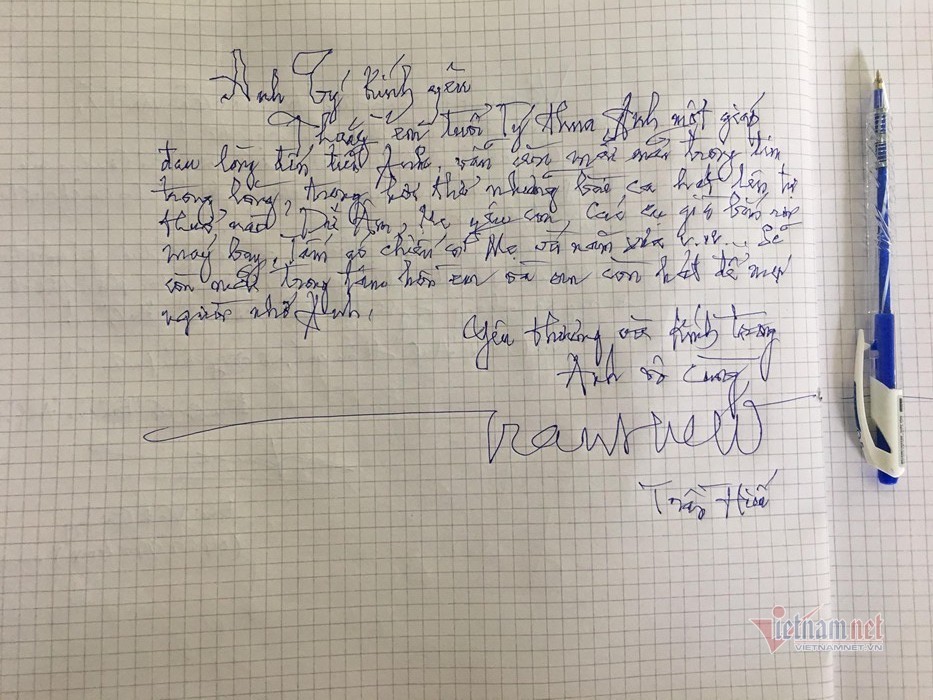 Anh Tý kính yêu
Thằng em tuổi Tý thua Anh một giáp
đau lòng đến tiễn Anh. vẫn còn mãi mãi trong tim
trong lòng, trong hơi thở những bài ca hát lên từ
thuở nào, Dư Âm, Mẹ yêu con, Các cụ già bắn rơi
máy bay, Tấm áo chiến sĩ Mẹ vá năm xưa v.v... Sẽ
còn mãi trong tâm hồn em và em còn hát để mọi
người nhớ Anh.
Yêu thương và kính trọng
Anh vô cùng
Tranhieu
Trần Hiếu
Vietnamnet
VIETNAMNET.VN